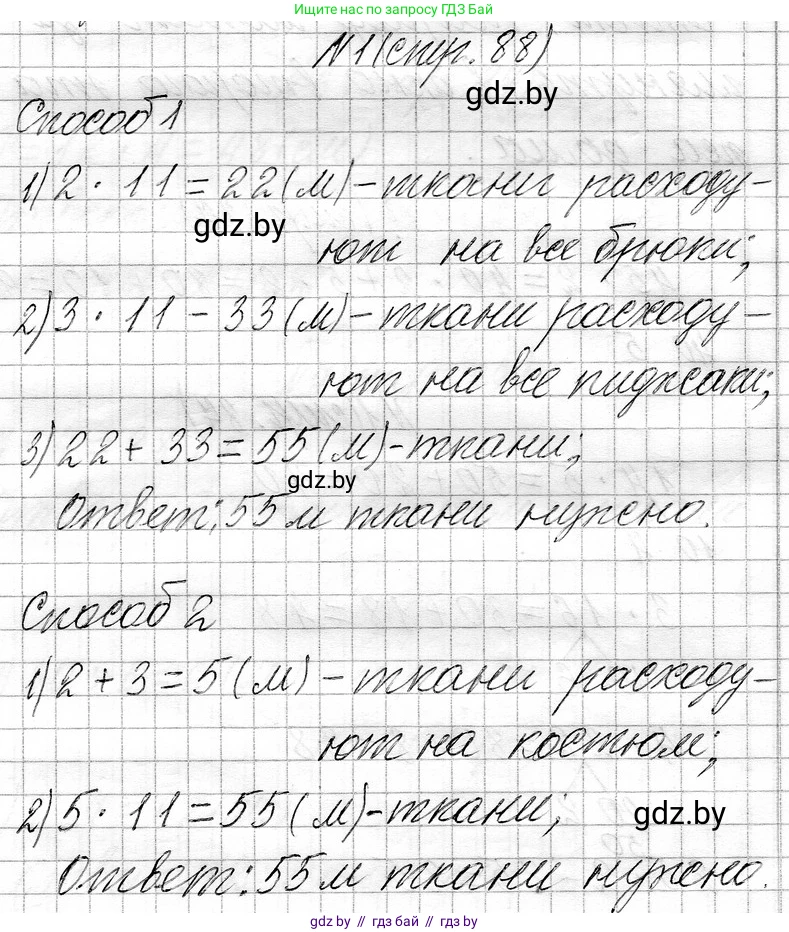 Ищите нас по запросу ГДЗ Бай
№1 (стр. 88)
gdz.by
Способ 1
1) 2 · 11 = 22 (м) – ткани расходу-
gdz.by
ют на все брюки;
2) 3 · 11 – 33 (м) – ткани расходу-
ют на все пиджаки;
3) 22 + 33 = 55 (м) – ткани;
gdz.by
Ответ: 55 м ткани нужно.
Способ 2
1) 2 + 3 = 5 (м) – ткани расходу-
ют на костюм;
2) 5 · 11 = 55 (м) – ткани;
gdz.by
Ответ: 55 м ткани нужно.
gdz.by // гдз бай // gdz.by